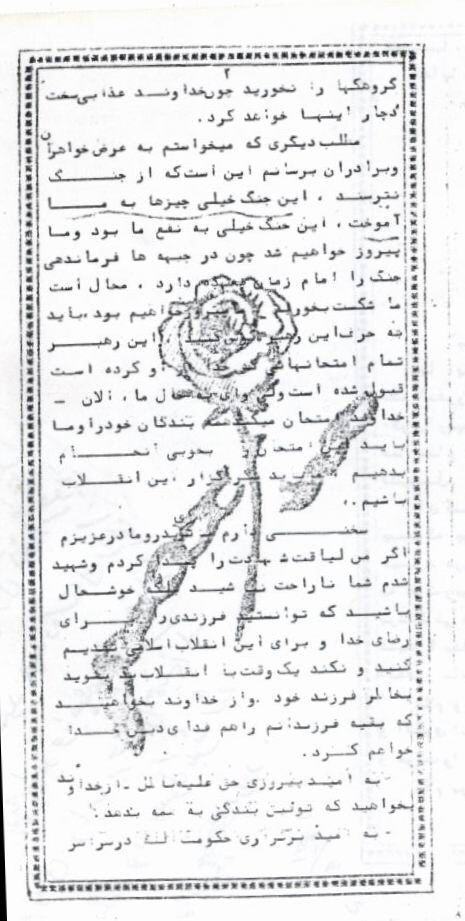 ۲
گروهگها را نخورید چون خداوند عذابی سخت
دچار اینها خواهد کرد.
مطلب دیگری که میخواستم به عرض خواهران
وبرادران برسانم این است که از جنگ
نترسند ، این جنگ خیلی چیزها به ما
آموخت، این جنگ خیلی به نفع ما بود وما
پیروز خواهیم شد چون در جبهه ها فرماندهی
جنگ را امام زمان بعهده دارد ، محال است
ما شکست بخوریم خواهیم بود،باید
به حرف این رهبر این رهبر
تمام امتحانهای خدا از او کرده است
قبول شده است ولی وای به حال ما، الان -
خداوند امتحان میکند بندگان خودرا وما
باید این امتحان را بخوبی انجام
بدهیم این انقلاب
باشیم ..
دارم پدرومادرعزیزم
اگر من لیاقت شهادت را پیدا کردم وشهید
شدم شما ناراحت خوشحال
باشید که توانستید فرزندی را برای
رضای خدا و برای این انقلاب اسلامی تقدیم
کنید و نکند یک وقت به انقلاب بد بگوئید
بخاطر فرزند خود .واز خداوند بخواهید
که بقیه فرزندانم راهم فدای دین خدا
خواهم کرد.
- به امید پیروزی حق علیه باطل -ازخداوند
بخواهید که توفیق بندگی به همه بدهد.
- به امید برقراری حکومت الله درسراسر